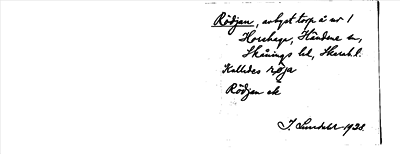 Rödjan, avlyst torp å nr 1
Horshaga, Händene sn,
Skånings hd, Skarab. l.
Kallades röja
Rödjan ek
J. Sundell 1928.